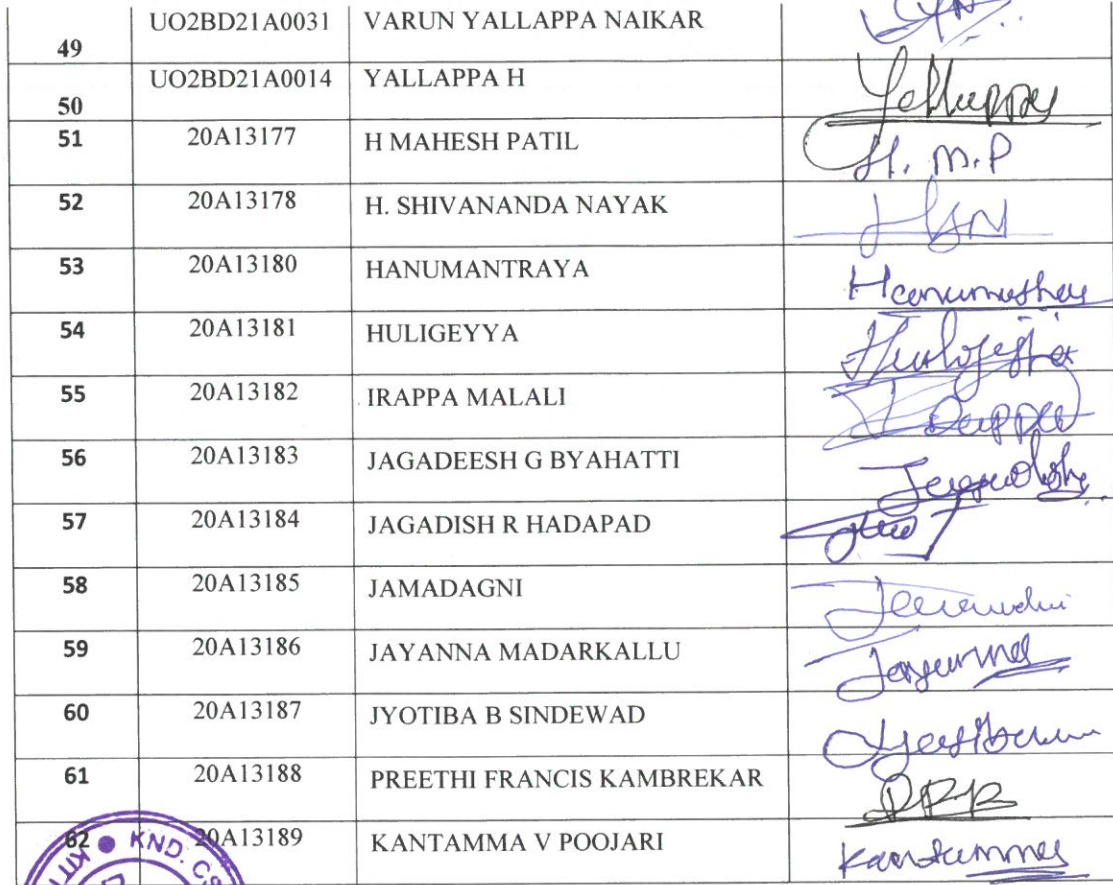 49 UO2BD21A0031 VARUN YALLAPPA NAIKAR
50 UO2BD21A0014 YALLAPPA H Yallappa
51 20A13177 H MAHESH PATIL H. M. P
52 20A13178 H. SHIVANANDA NAYAK HSN
53 20A13180 HANUMANTRAYA
54 20A13181 HULIGEYYA
55 20A13182 IRAPPA MALALI
56 20A13183 JAGADEESH G BYAHATTI
57 20A13184 JAGADISH R HADAPAD
58 20A13185 JAMADAGNI
59 20A13186 JAYANNA MADARKALLU
60 20A13187 JYOTIBA B SINDEWAD
61 20A13188 PREETHI FRANCIS KAMBREKAR
62 20A13189 KANTAMMA V POOJARI Kantamma
KND. CS
KIT